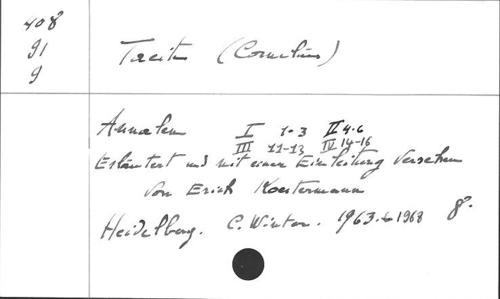 408
91
9
Tacitus (Cornelius)
Annalen I 1-3 II 4-6
III 11-13 IV 14-16
Erläutert und mit einer Einleitung versehen
von Erich Koestermann
Heidelberg. C. Winter. 1963-1968 8°.